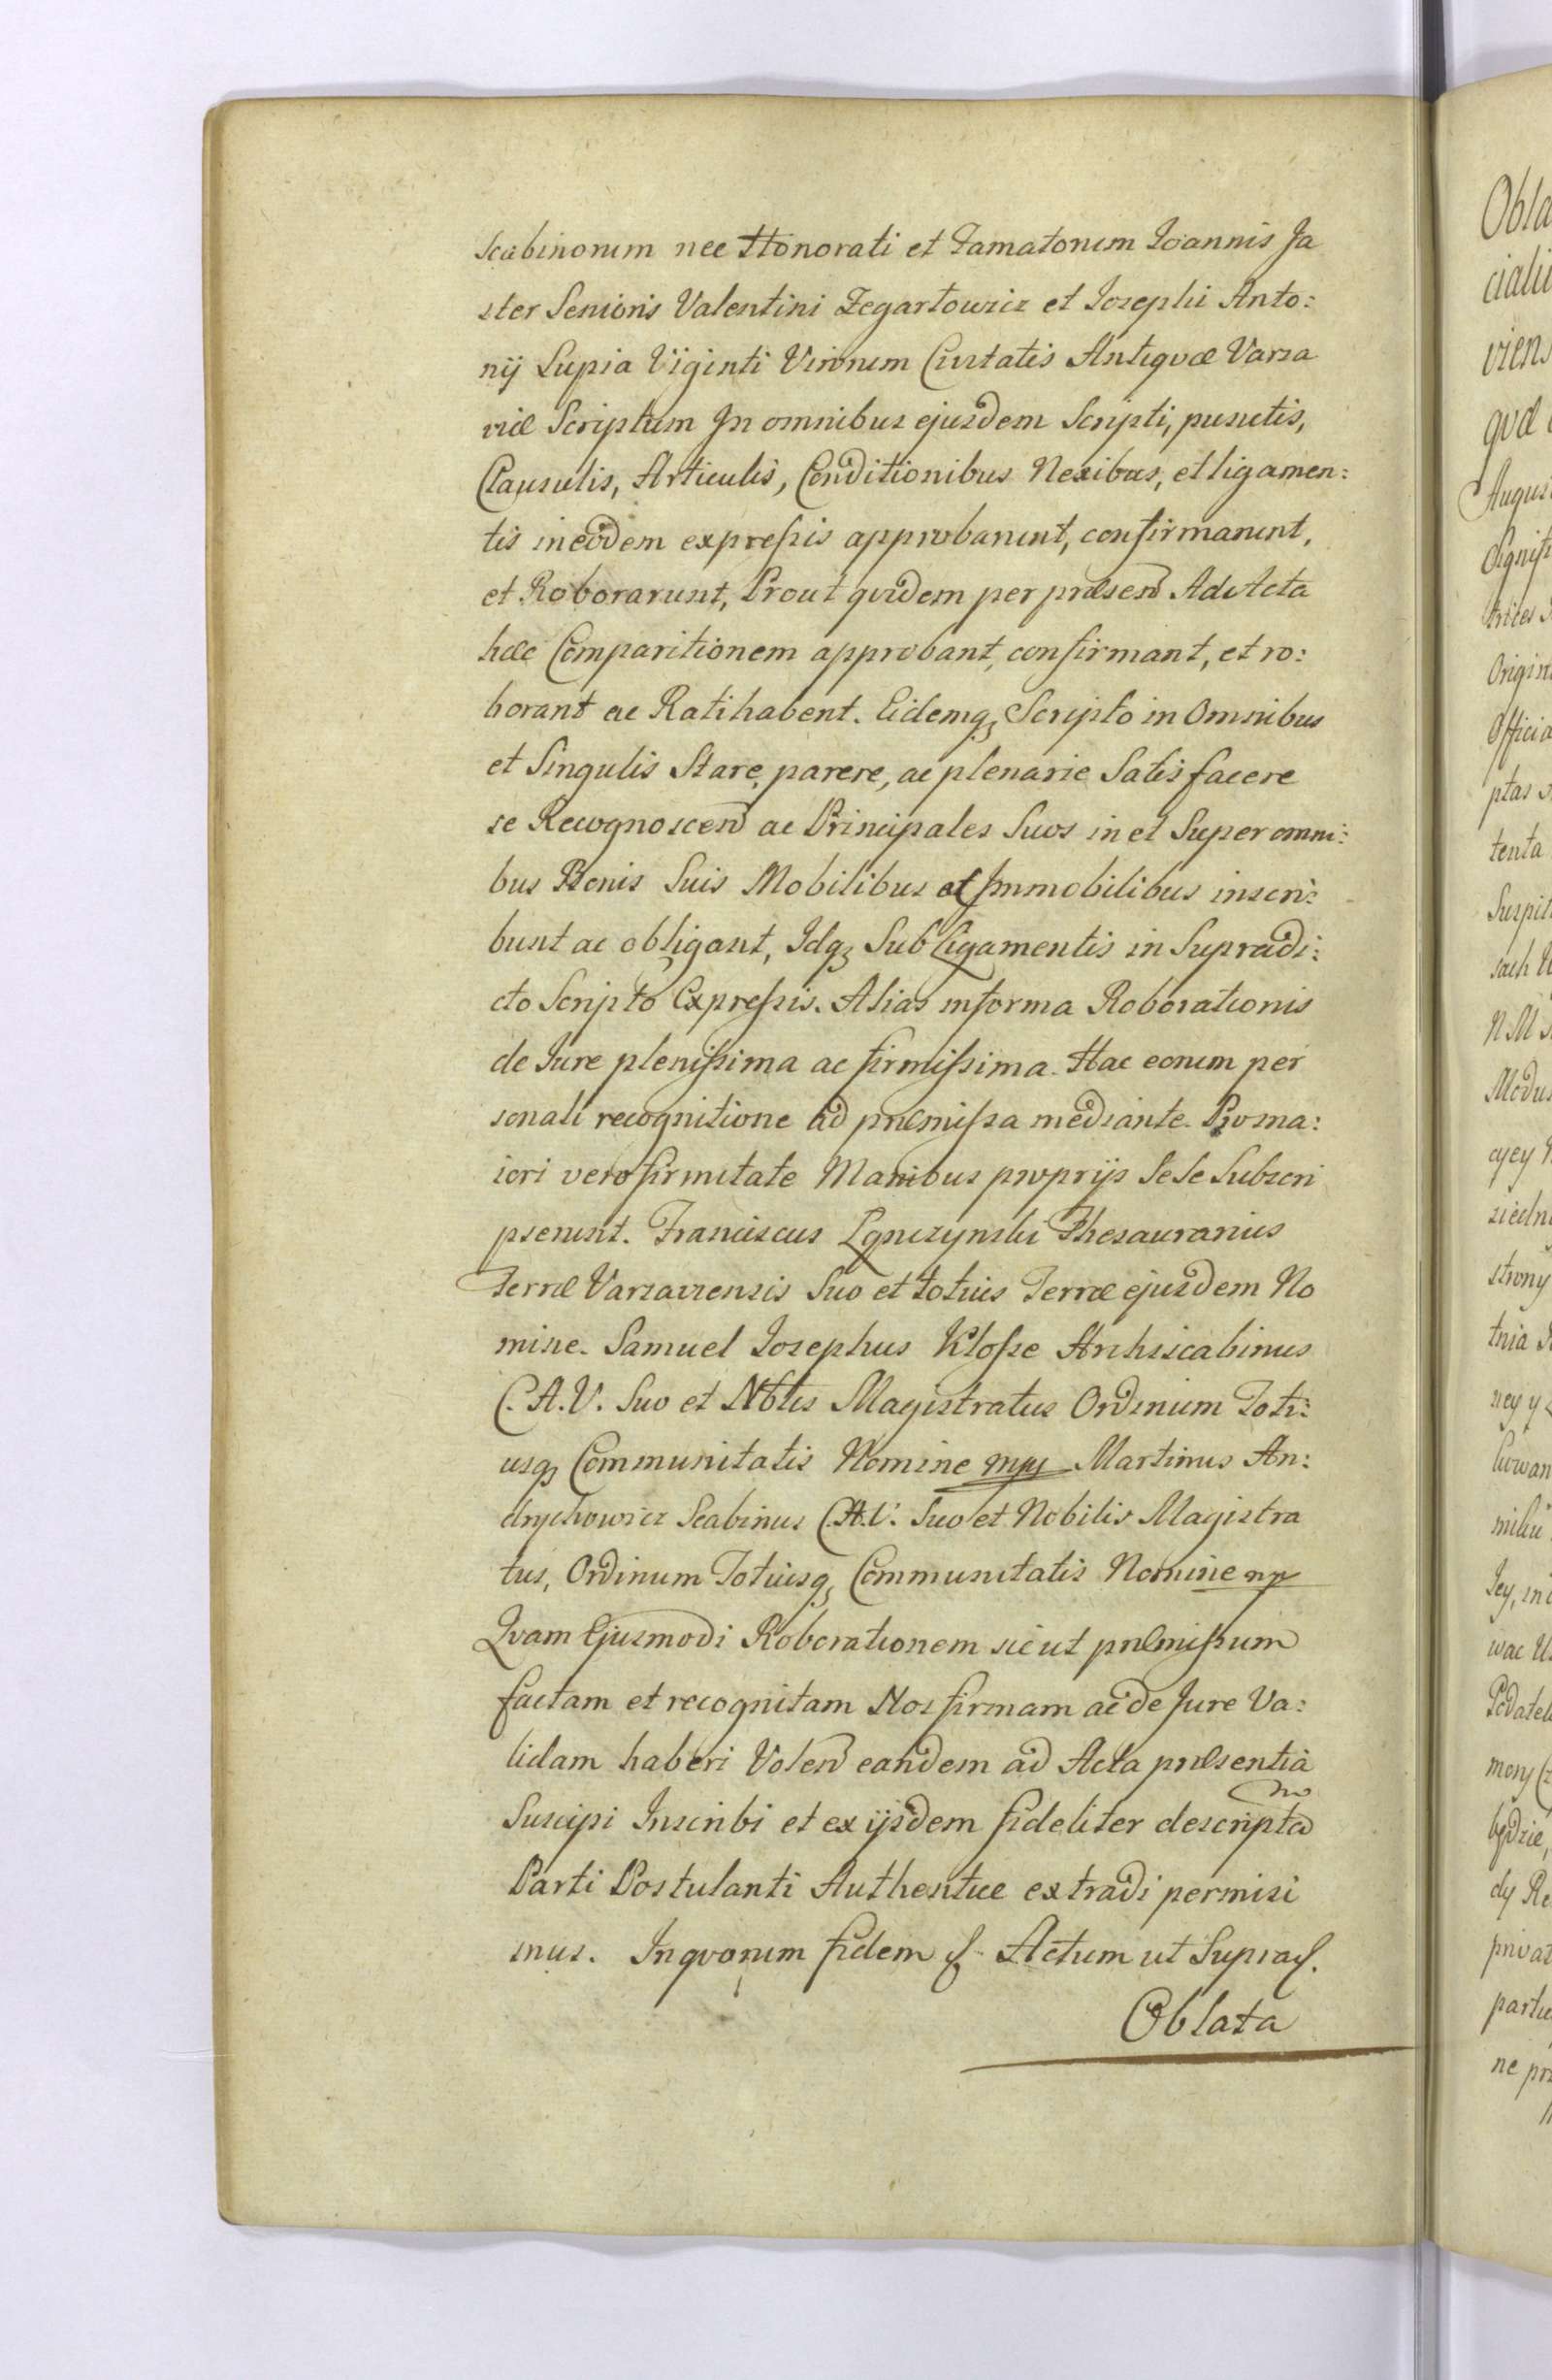 Scabinorum nec Honorati et Famatorum Ioannis Ja
ster Senioris Valentini Zegartowicz et Iosephi Anto:
nij Lupia Viginti Virorum Civitatis Antiquæ Varsa
viæ Scriptum Jn omnibus ejusdem Scripti, punctis,
Clausulis, Articulis, Conditionibus Nexibus, et ligamen:
tis ineodem expressis approbarunt, confirmarunt,
et Roborarunt, Prout quidem per præsen Ad Acta
hæc Comparitionem approbant, confirmant, et ro:
borant ac Ratihabent. Eidemq Scripto in Omnibus
et Singulis Stare, parere, ac plenarie Satisfacere
se Recognoscen ac Principales Suos in et Super omni:
bus Bonis Suis Mobilibus et Jmmobilibus inscri:
bunt ac obligant, Idq Sub Ligamentis in Supradi:
cto Scripto Expressis. Alias informa Roborationis
de Iure plenissima ac firmissima. Hac eorum per
sonali recognitione ad præmissa mediante. Proma:
iori vero firmitate Manibus proprijs Sese Subscri
pserunt. Franciscus Thesaurarius
Terræ Varsaviensis Suo et totius Terræ ejusdem No
mine. Samuel Iosephus Klosse Archiscabinus
C. A. V. Suo et Nblis Magistratus Ordinum Toti:
usq Communitatis Nomine mpp Martinus An:
drychowicz Scabinus C. A. V. Suo et Nobilis Magistra
tus, Ordinum Totiusq Communitatis Nomine mp
Quam Ejusmodi Roborationem sicut præmissum
factam et recognitam Nos firmam ac de Jure Va:
lidam haberi Volen eandem ad Acta præsentia
Suscipi Inscribi et ex ijsdem fideliter descripta
Parti Postulanti Authentice extradi permisi
mus. Inquorum fidem Actum ut Supra.
Oblata